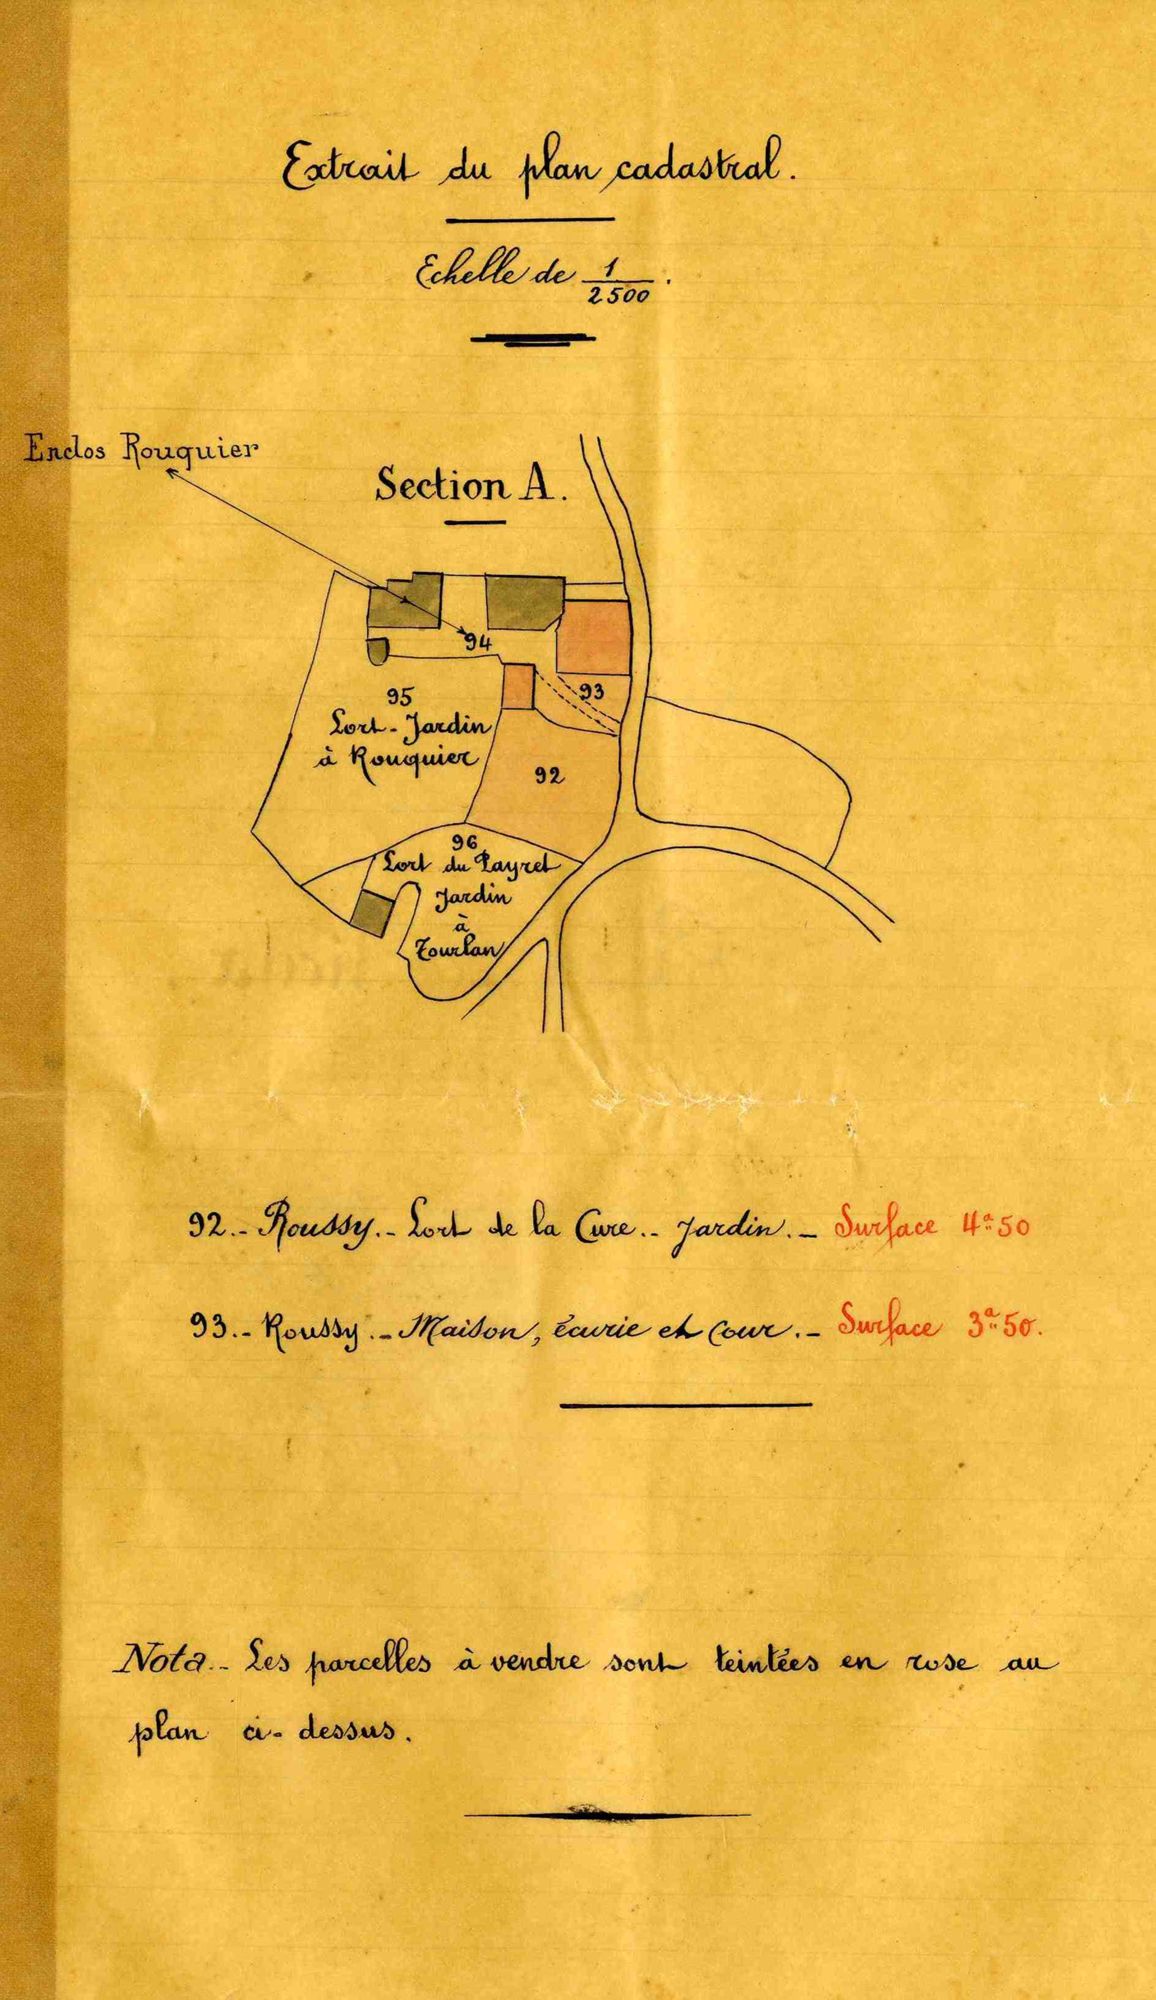 Extrait du plan cadastral.
Echelle de 1/2500.
Enclos Rouquier
Section A.
94
93
95
Lort-Jardin
à Rouquier
92
96
Lort du Payret
Jardin
à
Tourlan
92.- Roussy.- Lort de la Cure.- Jardin.- Surface 4a50
93.- Roussy.- Maison, écurie et Cour.- Surface 3a50.
Nota.- Les parcelles à vendre sont teintées en rose au
plan ci-dessus.